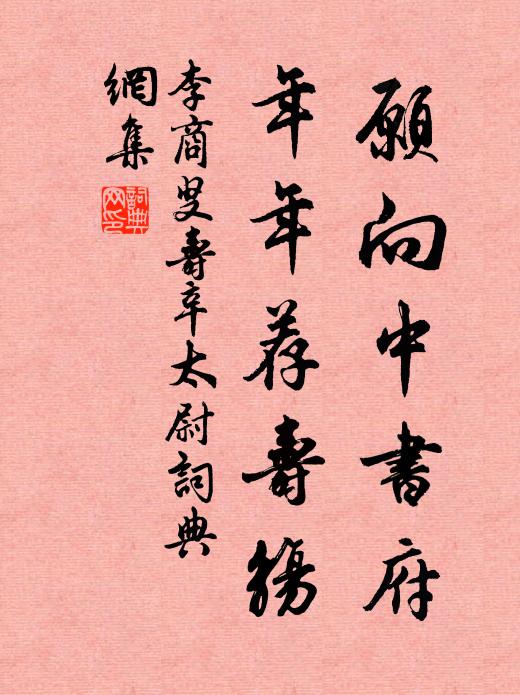 願向中書府
年年荐壽觴
李商叟壽辛太尉詞典
網集
詞典網印